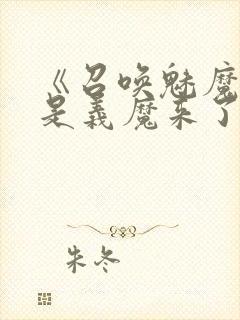 《召唤魅魔
是义魔来了
朱冬